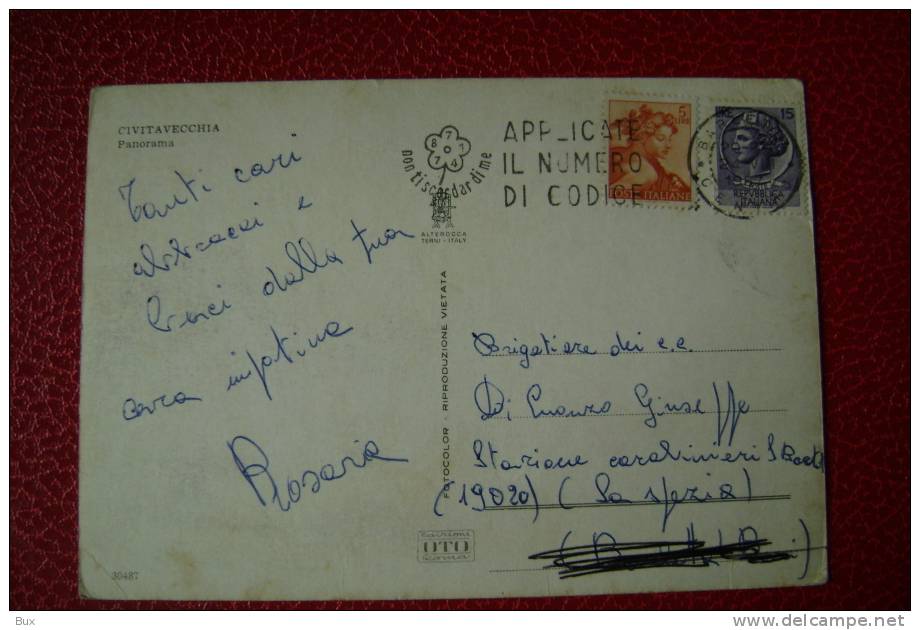 CIVITAVECCHIA
Panorama
Tanti cari
abbracci e
baci dalla tua
cara nipotina
Rosaria
nontiscordardime
ALTEROCCA
TERNI - ITALY
APPLICATE
IL NUMERO
DI CODICE
5
LIRE
POSTE ITALIANE
15
REPVBBLICA
ITALIANA
FOTOCOLOR - RIPRODUZIONE VIETATA
Brigatiere dei c.c.
Di Giuseppe
Stazione carabinieri
(19020) (La spezia)
edizioni
OTO
roma
30487
Bux
www.delcampe.net